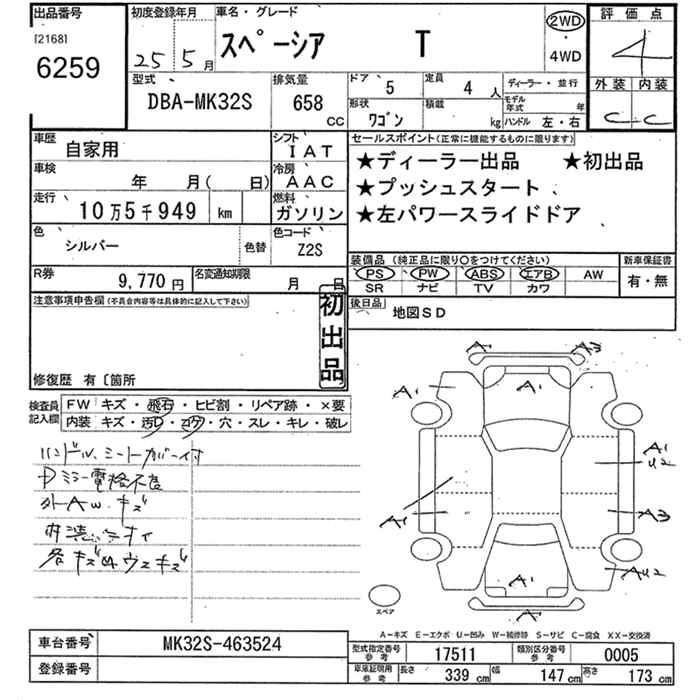 出品番号
[2168]
6259
初度登録年月
25年 5月
車名・グレード
スペーシア T
2WD
・
4WD
評価点
4
外装 内装
C C
型式
DBA-MK32S
排気量
658 cc
ドア 5
定員 4 人
形状 ワゴン
積載 kg
ディーラー・並行
モデル年式 年
ハンドル 左・右
車歴 自家用
シフト IAT
車検 年 月( 日)
冷房 AAC
走行 10万5千949 km
燃料 ガソリン
色 シルバー
色替
色コード Z2S
R券 9,770円
名変通知期限 月 日
セールスポイント(正常に機能するものに限ります)
★ディーラー出品 ★初出品
★プッシュスタート
★左パワースライドドア
装備品 (純正品に限り○をつけてください)
PS PW ABS エアB AW
SR ナビ TV カワ
新車保証書
有・無
後日品 地図SD
注意事項申告欄(不具合内容等は具体的に記入して下さい)
初出品
修復歴 有〔箇所
検査員記入欄
FW キズ・飛石・ヒビ割・リペア跡・×要
内装 キズ・汚レ・コゲ・穴・スレ・キレ・破レ
ハンドル、シートカバー付
外AW キズ
A1 A3
A1
A1
A1
U2
A1
A3
A1
AU2
A1
スペア
A-キズ E-エクボ U-凹み W-補修跡 S-サビ C-腐食 XX-交換済
車台番号 MK32S-463524
登録番号
型式指定番号 参考 17511
類別区分番号 参考 0005
車庫証明用 参考 長さ 339 cm 幅 147 cm 高さ 173 cm